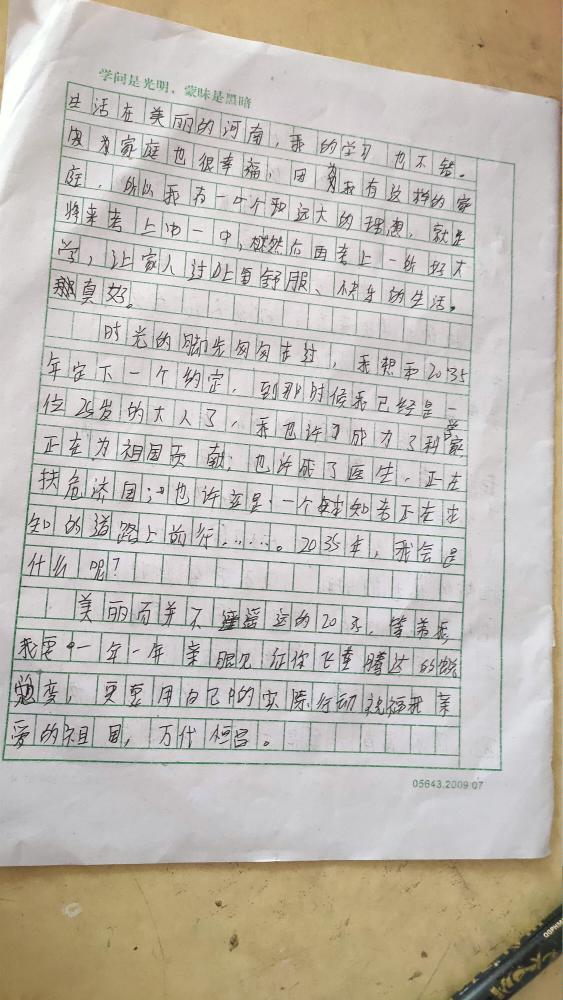 学问是光明、蒙昧是黑暗
生活在美丽的河南，我的学习也不错。
因为家庭也很幸福，因为我有这样的家
庭，所以我有一个个远大的理想，就是
将来考上中一中，然后再考上一所好大
学，让家人过上舒服、快乐的生活。
那真好。
时光的脚步匆匆走过，我想和2035
年定下一个约定，到那时候我已经是一
位25岁的大人了，我也许成为了科学家
正在为祖国贡献；也许成了医生，正在
扶危济国；也许还是一个求知者正在求
知的道路上前行……。2035年，我会是
什么呢？
美丽而并不遥远的2035，等着我
我要一年一年亲眼见证你飞腾达的蜕
变，更要用自己的实际行动祝福我亲
爱的祖国，万代恒昌。
05643.2009.07